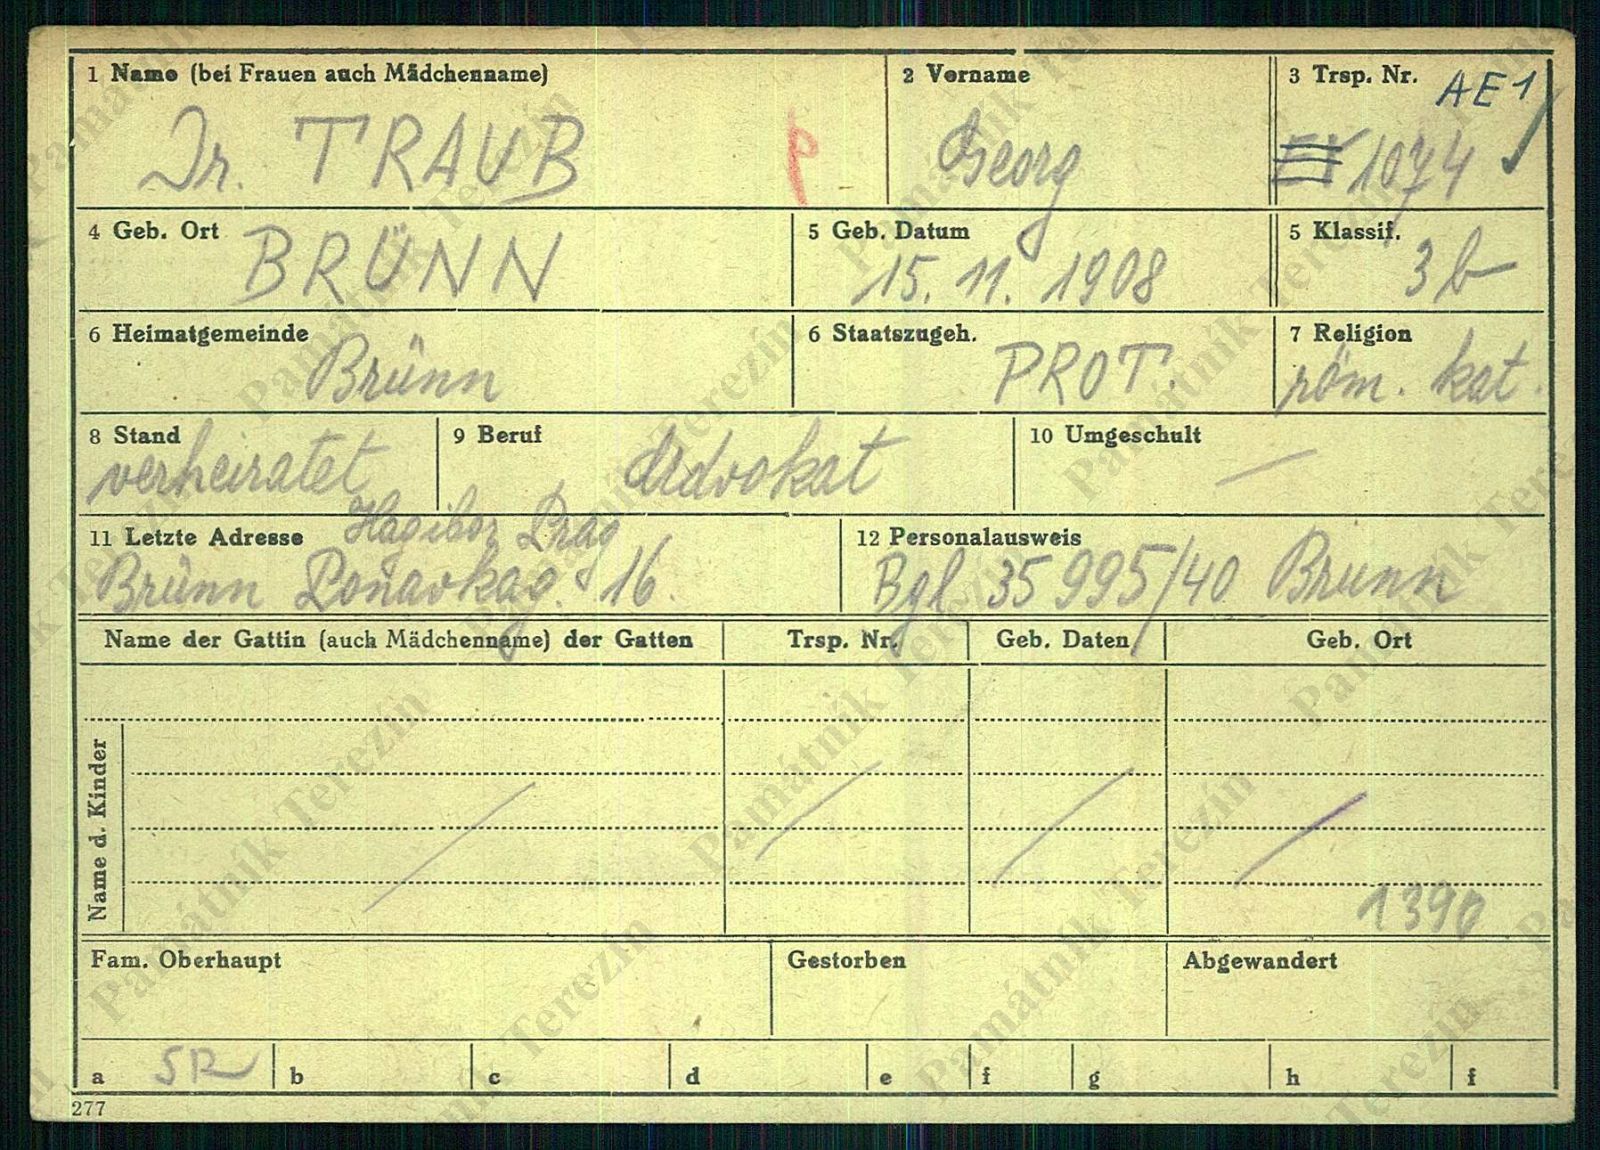 1 Name (bei Frauen auch Mädchenname)
Dr. TRAUB
2 Vorname
Georg
3 Trsp. Nr.
AE1
1074
4 Geb. Ort
BRÜNN
5 Geb. Datum
15. 11. 1908
5 Klassif.
3b
6 Heimatgemeinde
Brünn
6 Staatszugeh.
PROT.
7 Religion
röm. kat.
8 Stand
verheiratet
9 Beruf
Advokat
10 Umgeschult
—
11 Letzte Adresse
Hagibor Prag
Brünn 16.
12 Personalausweis
Bgl 35 995/40 Brünn
Name der Gattin (auch Mädchenname) der Gatten
Trsp. Nr.
Geb. Daten
Geb. Ort
Name d. Kinder
1390
Fam. Oberhaupt
Gestorben
Abgewandert
a SR
b
c
d
e
f
g
h
f
277
Památník Terezín